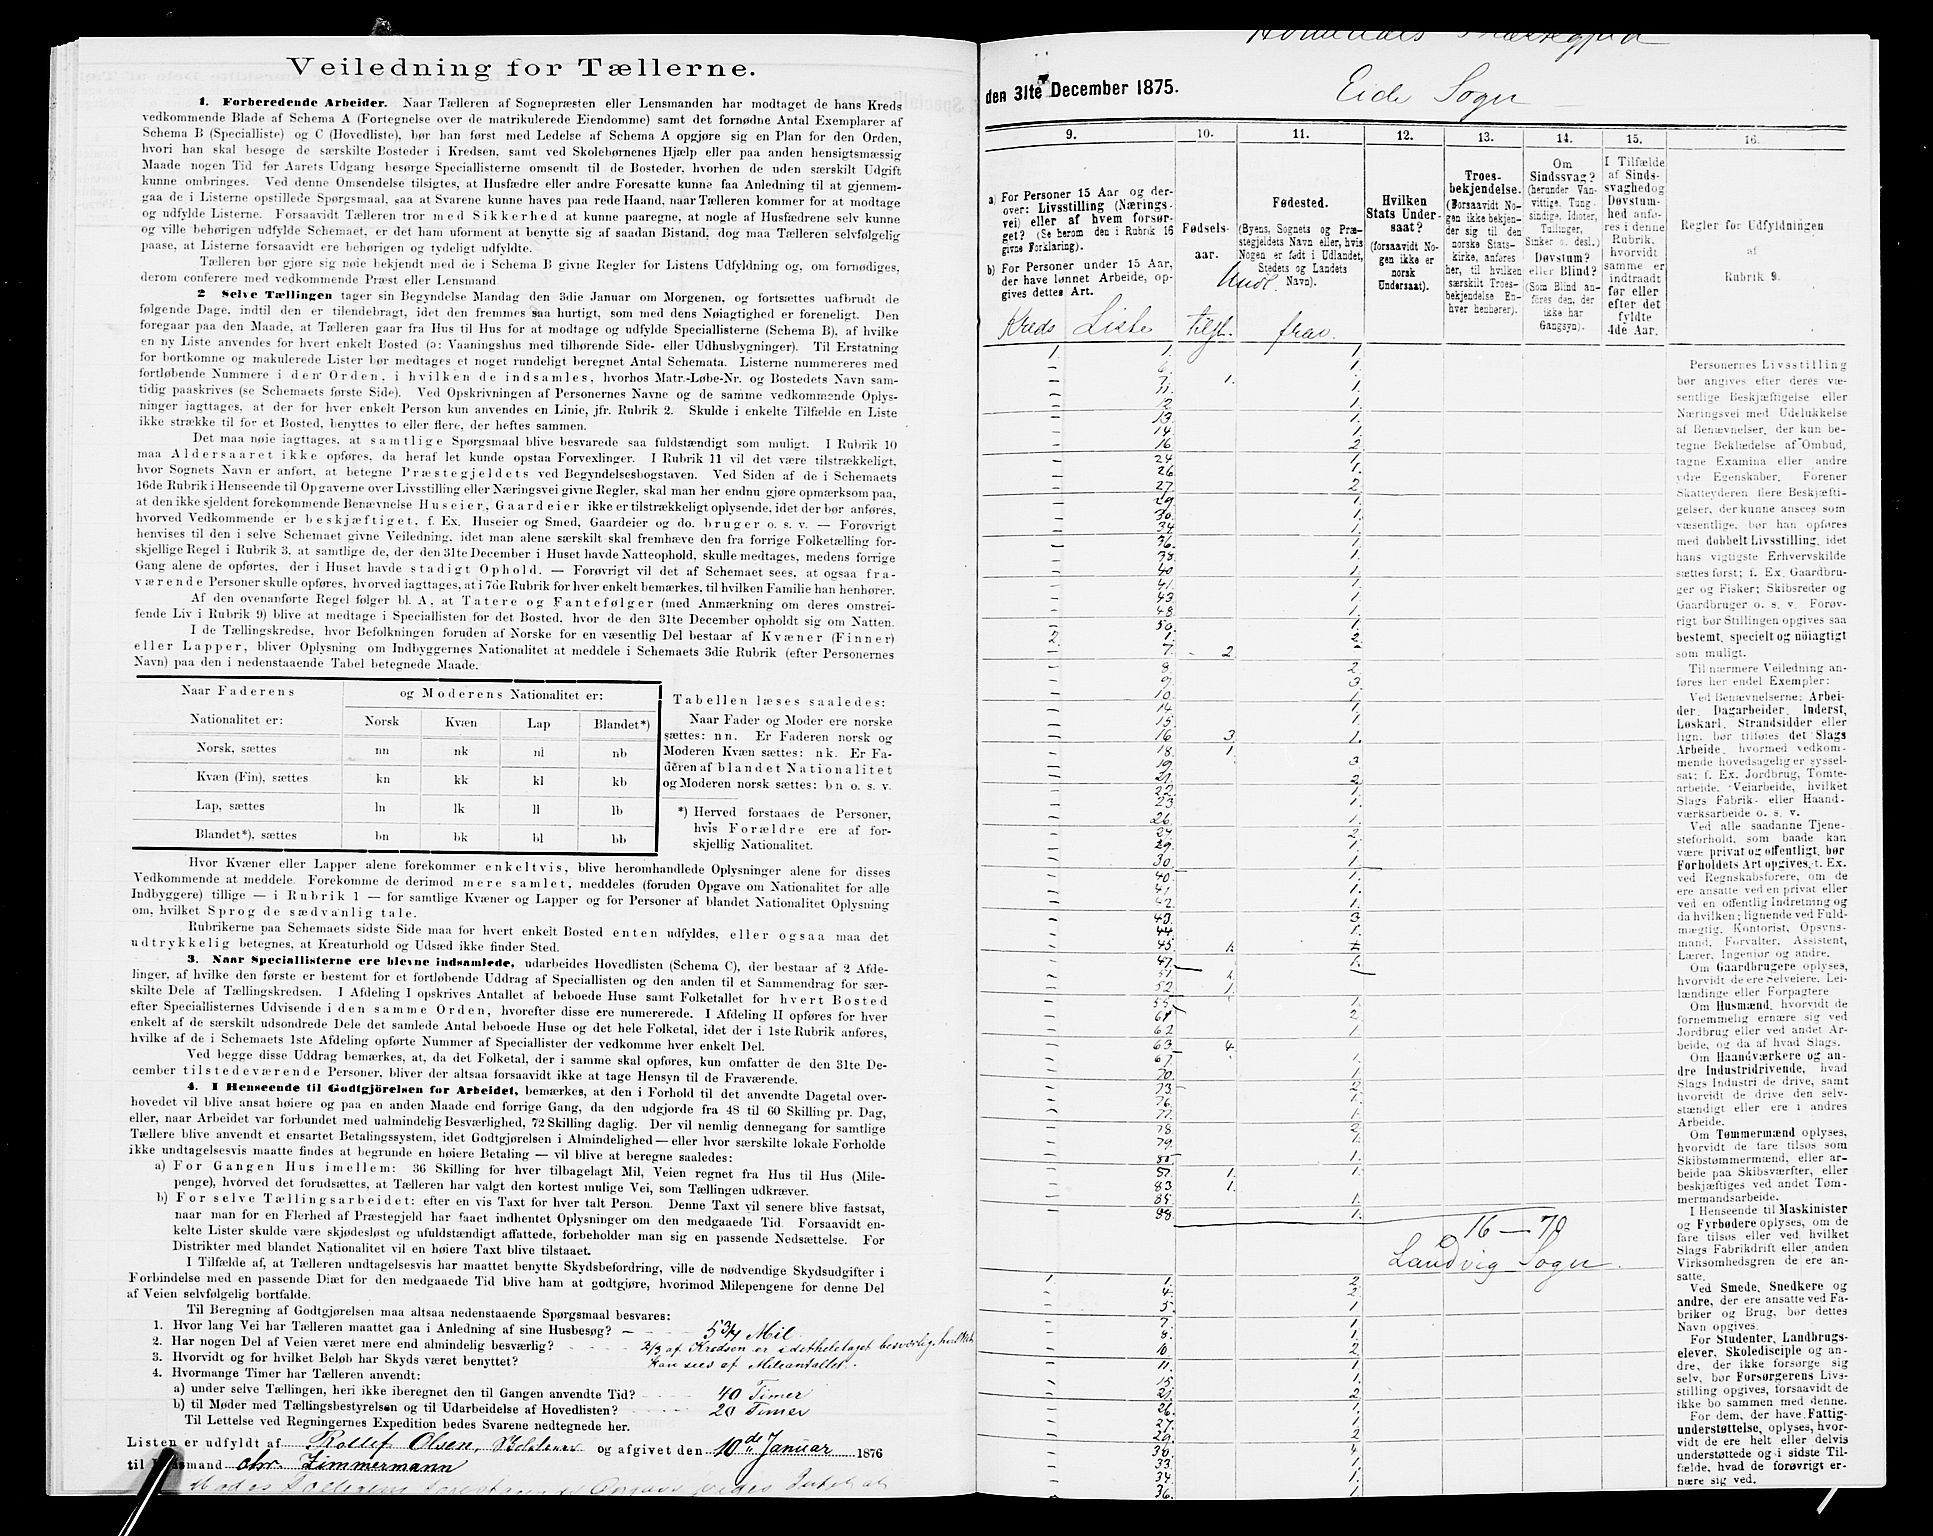 Veiledning for Tællerne.
1. Forberedende Arbeider. Naar Tælleren af Sognepræsten eller Lensmanden har modtaget de hans Kreds
vedkommende Blade af Schema A (Fortegnelse over de matrikulerede Eiendomme) samt det fornødne Antal Exemplarer af
Schema B (Specialliste) og C (Hovedliste), bør han først med Ledelse af Schema A opgjøre sig en Plan for den Orden,
hvori han skal besøge de særskilte Bosteder i Kredsen, samt ved Skolebørnenes Hjælp eller paa anden hensigtsmæssig
Maade nogen Tid før Aarets Udgang besørge Speciallisterne omsendt til de Bosteder, hvorhen de uden særskilt Udgift
kunne ombringes. Ved denne Omsendelse tilsigtes, at Husfædre eller andre Foresatte kunne faa Anledning til at gjennem-
gaa de i Listerne opstillede Spørgsmaal, saa at Svarene kunne haves paa rede Haand, naar Tælleren kommer for at modtage
og udfylde Listerne. Forsaavidt Tælleren tror med Sikkerhed at kunne paaregne, at nogle af Husfædrene selv kunne
og ville behørigen udfylde Schemaet, er det ham uforment at benytte sig af saadan Bistand, dog maa Tælleren selvfølgelig
paase, at Listerne forsaavidt ere behørigen og tydeligt udfyldte.
Tælleren bør gjøre sig nøie bekjendt med de i Schema B givne Regler for Listens Udfyldning og, om fornødiges,
derom conferere med vedkommende Præst eller Lensmand.
2 Selve Tællingen tager sin Begyndelse Mandag den 3die Januar om Morgenen, og fortsættes uafbrudt de
følgende Dage, indtil den er tilendebragt, idet den fremmes saa hurtigt, som med dens Nøiagtighed er foreneligt. Den
foregaar paa den Maade, at Tælleren gaar fra Hus til Hus for at modtage og udfylde Speciallisterne (Schema B), af hvilke
en ny Liste anvendes for hvert enkelt Bosted (ɔ: Vaaningshus med tilhørende Side- eller Udhusbygninger). Til Erstatning
for bortkomne og makulerede Lister bør medtages et noget rundeligt beregnet Antal Schemata. Listerne nummereres med
fortløbende Nummere i den Orden, i hvilken de indsamles, hvorhos Matr.-Løbe-Nr. og Bostedets Navn sam-
tidig paaskrives (se Schemaets første Side). Ved Opskrivningen af Personernes Navne og de samme vedkommende Oplys-
ninger iagttages, at der for hver enkelt Person kun anvendes en Linie, jfr. Rubrik 2. Skulde i enkelte Tilfælde en Liste
ikke strække til for et Bosted, benyttes to eller flere, der heftes sammen.
Det maa nøie iagttages, at samtlige Spørgsmaal blive besvarede saa fuldstændigt som muligt. I Rubrik 10
maa Aldersaaret ikke opføres, da heraf let kunde opstaa Forvexlinger. I Rubrik 11 vil det være tilstrækkeligt,
hvor Sognets Navn er anført, at betegne Præstegjeldets ved Begyndelsesbogstaven. Ved Siden af de i Schemaets
16de Rubrik i Henseende til Opgaverne over Livsstilling eller Næringsvei givne Regler, skal man her endnu gjøre opmærksom paa,
at den ikke sjeldent forekommende Benævnelse Huseier, Gaardeier ikke er tilstrækkeligt oplysende, idet der bør anføres,
hvorved Vedkommende er beskjæftiget, f. Ex. Huseier og Smed, Gaardeier og do. bruger o. s. v. — Forøvrigt
henvises til den i selve Schemaet givne Veiledning, idet man alene særskilt skal fremhæve den fra forrige Folketælling for-
skjellige Regel i Rubrik 3, at samtlige de, der den 31te December i Huset havde Natteophold, skulle medtages, medens forrige
Gang alene de opførtes, der i Huset havde stadigt Ophold. — Forøvrigt vil det af Schemaet sees, at ogsaa fra-
værende Personer skulle opføres, hvorved iagttages, at i 7de Rubrik for hver enkelt bemærkes, til hvilken Familie han henhører.
Af den ovenanførte Regel følger bl. A, at Tatere og Fantefølger (med Anmærkning om deres omstrei-
fende Liv i Rubrik 9) blive at medtage i Speciallisten for det Bosted, hvor de den 31te December opholdt sig om Natten.
I de Tællingskredse, hvor Befolkningen foruden af Norske for en væsentlig Del bestaar af Kvæner (Finner)
eller Lapper, bliver Oplysning om Indbyggernes Nationalitet at meddele i Schemaets 3die Rubrik (efter Personernes
Navn) paa den i nedenstaaende Tabel betegnede Maade.
Naar Faderens og Moderens Nationalitet er:
Nationalitet er: Norsk Kvæn Lap Blandet*)
Norsk, sættes nn nk nl nb
Kvæn (Fin), sættes kn kk kl kb
Lap, sættes ln lk ll lb
Blandet*), sættes bn bk bl bb
Tabellen læses saaledes:
Naar Fader og Moder ere norske
sættes: nn. Er Faderen norsk og
Moderen Kvæn sættes: nk. Er Fa-
deren af blandet Nationalitet
og Moderen norsk sættes: bn o. s. v.
*) Herved forstaaes de Personer,
hvis Forældre ere af for-
skjellig Nationalitet.
Hvor Kvæner eller Lapper alene forekommer enkeltvis, blive heromhandlede Oplysninger alene for disses
Vedkommende at meddele. Forekomme de derimod mere samlet, meddeles (foruden Opgave om Nationalitet for alle
Indbyggere) tillige — i Rubrik 1 — for samtlige Kvæner og Lapper og for Personer af blandet Nationalitet Oplysning
om, hvilket Sprog de sædvanlig tale.
Rubrikerne paa Schemaets sidste Side maa for hvert enkelt Bosted enten udfyldes, eller ogsaa maa det
udtrykkelig betegnes, at Kreaturhold og Udsæd ikke finder Sted.
3. Naar Speciallisterne ere blevne indsamlede, udarbeides Hovedlisten (Schema C), der bestaar af 2 Afde-
linger, af hvilke den første er bestemt for et fortløbende Uddrag af Speciallisten og den anden til et Sammendrag for sær-
skilte Dele af Tællingskredsen. I Afdeling I opskrives Antallet af beboede Huse samt Folketallet for hvert Bosted
efter Speciallisternes Udvisende i den samme Orden, hvorefter disse ere numererede. I Afdeling II opføres for hver
enkelt af de særskilt udsondrede Dele det samlede Antal beboede Huse og det hele Folketal, idet der i 1ste Rubrik anføres,
hvilke af de i Schemaets 1ste Afdeling opførte Nummer af Speciallister der vedkomme hver enkelt Del.
Ved begge disse Uddrag bemærkes, at, da det Folketal, der i samme skal opføres, kun omfatter de den 31te De-
cember tilstedeværende Personer, bliver der altsaa forsaavidt ikke at tage Hensyn til de Fraværende.
4. I Henseende til Godtgjörelsen for Arbeidet, bemærkes, at den i Forhold til det anvendte Dagetal over-
hovedet vil blive ansat høiere og paa en anden Maade end forrige Gang, da den udgjorde fra 48 til 60 Skilling pr. Dag,
eller, naar Arbeidet var forbundet med ualmindelig Besværlighed, 72 Skilling daglig. Der vil nemlig dennegang for samtlige
Tællere blive anvendt et ensartet Betalingssystem, idet Godtgjörelsen i Almindelighed — eller hvor særskilte lokale Forholde
ikke undtagelsesvis maatte findes at begrunde en høiere Betaling — vil blive at beregne saaledes:
a) For Gangen Hus imellem: 36 Skilling for hver tilbagelagt Mil, Veien regnet fra Hus til Hus (Mile-
penge), hvorved det forudsættes, at Tælleren har valgt den kortest mulige Vei, som Tællingen udkræver.
b) For selve Tællingsarbeidet: efter en vis Taxt for hver talt Person. Denne Taxt vil senere blive fastsat,
naar man for en Flerhed af Præstegjeld har faaet indhentet Oplysninger om den medgaaede Tid. Forsaavidt en-
kelte Lister skulde være skjødesløst og ufuldstændigt affattede, forbeholder man sig en passende Nedsættelse. For
Distrikter med blandet Nationalitet vil en høiere Taxt blive tilstaaet.
I Tilfælde af, at Tælleren undtagelsesvis har maattet benytte Skydsbefordring, ville de nødvendige Skydsudgifter i
Forbindelse med en passende Diæt for den medgaaede Tid blive ham at godtgjøre, hvorimod Milepengene for denne Del
af Veien selvfølgelig bortfalde.
Til Beregning af Godtgjørelsen maa altsaa nedenstaaende Spørgsmaal besvares:
1. Hvor lang Vei har Tælleren maattet gaa i Anledning af sine Husbesøg? — 5 3/4 Mil.
2. Har nogen Del af Veien været mere end almindelig besværlig? 2/3 af Kredsen er i det hele taget besværlig,
3. Hvorvidt og for hvilket Beløb har Skyds været benyttet? kan sees af Mileantallet.
4. Hvormange Timer har Tælleren anvendt:
a) under selve Tællingen, heri ikke iberegnet den til Gangen anvendte Tid? 40 Timer
b) til Møder med Tællingsbestyrelsen og til Udarbeidelse af Hovedlisten? 20 Timer
Til Lettelse ved Regningernes Expedition bedes Svarene nedtegnede her.
Listen er udfyldt af Rollef Olsen, og afgivet den 10de Januar 1876
til Lensmand Chr. Zimmermann
den 31te December 1875.
Eide Sogn
9. 10. 11. 12. 13. 14. 15. 16.
a) For Personer 15 Aar og der-
over: Livsstilling (Nærings-
vei) eller af hvem forsør-
get? (Se herom den i Rubrik 16
givne Forklaring).
b) For Personer under 15 Aar,
der have lønnet Arbeide, op-
gives dettes Art.
Fødsels-
aar.
Fødested.
(Byens, Sognets og Præ-
stegjeldets Navn eller, hvis
Nogen er født i Udlandet,
Stedets og Landets
Navn).
Hvilken
Stats Under-
saat?
(forsaavidt No-
gen ikke er
norsk
Undersaat).
Troes-
bekjendelse.
(Forsaavidt No-
gen ikke bekjen-
der sig til den
norske Stats-
kirke, anføres
her, til hvilken
særskilt Troes-
bekjendelse En-
hver henhører).
Om
Sindssvag?
(herunder Van-
vittige, Tung-
sindige, Idioter,
Tullinger,
Sinker o. desl.)
Døvstum?
eller Blind?
(Som Blind an-
føres den, der
ikke har
Gangsyn).
I Tilfælde
af Sinds-
svaghed og
Døvstum-
hed anfø-
res i denne
Rubrik,
hvorvidt
samme er
indtraadt
før eller
efter det
fyldte
4de Aar.
Regler for Udfyldningen
af
Rubrik 9.
Kreds Liste tilst. frav.
1. 1. 1.
— 6. 1.
— 7. 1. 1.
— 11. 1.
— 12 1.
— 13. 1.
— 14. 1.
— 16 2
— 24 1.
— 26. 1.
— 27. 2
— 29. 1.
— 30. 1.
— 34 1.
— 36. 1.
— 38. 1.
— 40 1.
— 41. 1.
— 43. 1.
— 48. 1.
— 50. 1.
2. 1. 2.
— 7. 2. -
— 8. 2
— 9. 3
— 10. 1.
— 14 1.
— 15. 1.
— 16 3. 1.
— 18. 1.
— 19. 3
— 21. 2
— 22. 1.
— 23 1.
— 26. 1.
— 27. 2
— 29. 1.
— 30. 1.
— 40. 1.
— 41. 1.
— 42. 1.
— 43. 3
— 44. 1.
— 45. 1.
— 47. 1.
— 51.
— 52 1.
— 55. 1.
— 61 2
— 62 1.
— 63. 4.
— 67. 1.
— 70. 1.
— 73. 2
— 76. 1.
— 77. 1.
— 78. 2
— 79. 1.
— 80. 1.
— 81. 1. 1.
— 83 1.
— 85. 1.
— 88. 1.
16 — 70
Landvig Sogn.
1 1. 2
4. 2
5. 1
7. 1.
8. 1.
10 2
11. 1.
15. 1.
21. 2
26. 1.
27. 1.
29. 2
30. 4
33. 1.
34. 1.
36. 1.
Personernes Livsstilling
bør angives efter deres væ-
sentlige Beskjæftigelse eller
Næringsvei med Udelukkelse
af Benævnelser, der kun be-
tegne Beklædelse af Ombud,
tagne Examina eller andre
ydre Egenskaber. Forener
Skatteyderen flere Beskjæfti-
gelser, der kunne ansees som
væsentlige, bør han opføres
med dobbelt Livsstilling, idet
hans vigtigste Erhvervskilde
sættes først; f. Ex. Gaardbru-
ger og Fisker; Skibsreder og
Gaardbruger o. s. v. Forøv-
rigt bør Stillingen opgives saa
bestemt, specielt og nöiagtigt
som muligt.
Til nærmere Veiledning an-
føres her endel Exempler:
Ved Benævnelserne: Arbei-
der, Dagarbeider, Inderst,
Løskarl, Strandsidder eller
lign. bør tilføres det Slags
Arbeide, hvormed vedkom-
mende hovedsagelig er syssel-
sat; f. Ex. Jordbrug, Tomte-
arbeide, Veiarbeide, hvilket
Slags Fabrik- eller Haand-
værksarbeide o. s. v.
Ved alle saadanne Tjene-
steforhold, som baade kan
være privat og offentligt, bør
Forholdets Art opgives, f. Ex.
ved Regnskabsførere, om de
ere ansatte ved en privat eller
ved en offentlig Indretning og
da hvilken; lignende ved Fuld-
mægtig, Kontorist, Opsyns-
mand, Forvalter, Assistent,
Lærer, Ingeniør og andre.
Om Gaardbrugere oplyses,
hvorvidt de ere Selveiere, Lei-
lændinge eller Forpagtere
Om Husmænd, hvorvidt de
fornemmelig ernære sig ved
Jordbrug eller ved andet Ar-
beide, og da af hvad Slags.
Om Haandværkere og an-
dre Industridrivende, hvad
Slags Industri de drive, samt
hvorvidt de drive den selv-
stændigt eller ere i andres
Arbeide.
Om Tømmermænd oplyses,
hvorvidt de fare tilsøs som
Skibstømmermænd, eller ar-
beide paa Skibsværfter, eller
beskjæftiges ved andet Tøm-
mermandsarbeide.
I Henseende til Maskinister
og Fyrbødere oplyses, om de
fare tilsøs eller ved hvilket
Slags Fabrikdrift eller anden
Virksomhedsgren de ere an-
satte.
Ved Smede, Snedkere og
andre, der ere ansatte ved Fa-
briker og Brug, bør dettes
Navn opgives.
For Studenter, Landbrugs-
elever, Skoledisciple og an-
dre, der ikke forsørge sig
selv, bør Forsørgerens Livs-
stilling opgives, forsaavidt de
ikke bo sammen med denne.
For dem, der have Fattig-
understøttelse, oplyses, hvor-
vidt de ere helt eller delvis
understøttede og i sidste Til-
fælde, hvad de forøvrigt er-
nære sig ved.